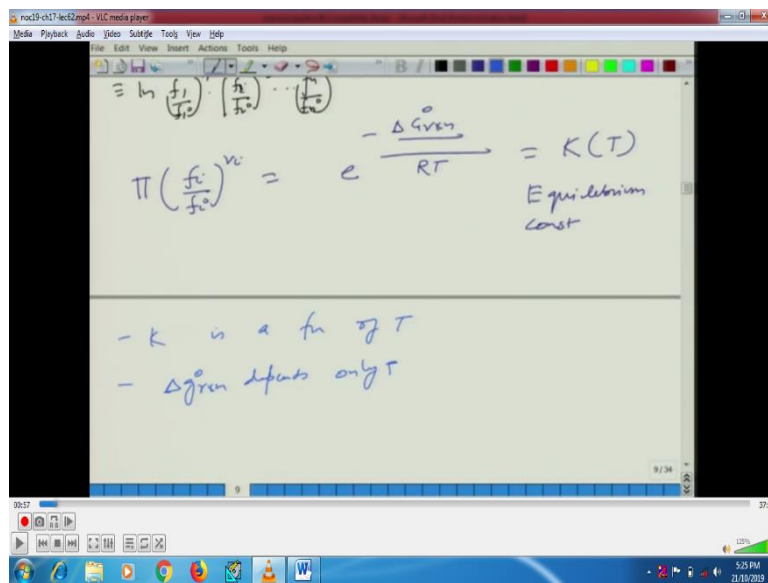 noc19-ch17-lec62.mp4 - VLC media player
Media Playback Audio Video Subtitle Tools View Help
File Edit View Insert Actions Tools Help
≡ ln (f₁/f₁°) · (f₂/f₂°) ...
Π (fᵢ/fᵢ°)^νᵢ = e^(-Δg°rxn/RT) = K(T)
Equilibrium
const
- K is a fn of T
- Δg°rxn depends only T
9/34
9
00:57
37:
125%
5:25 PM
21/10/2019